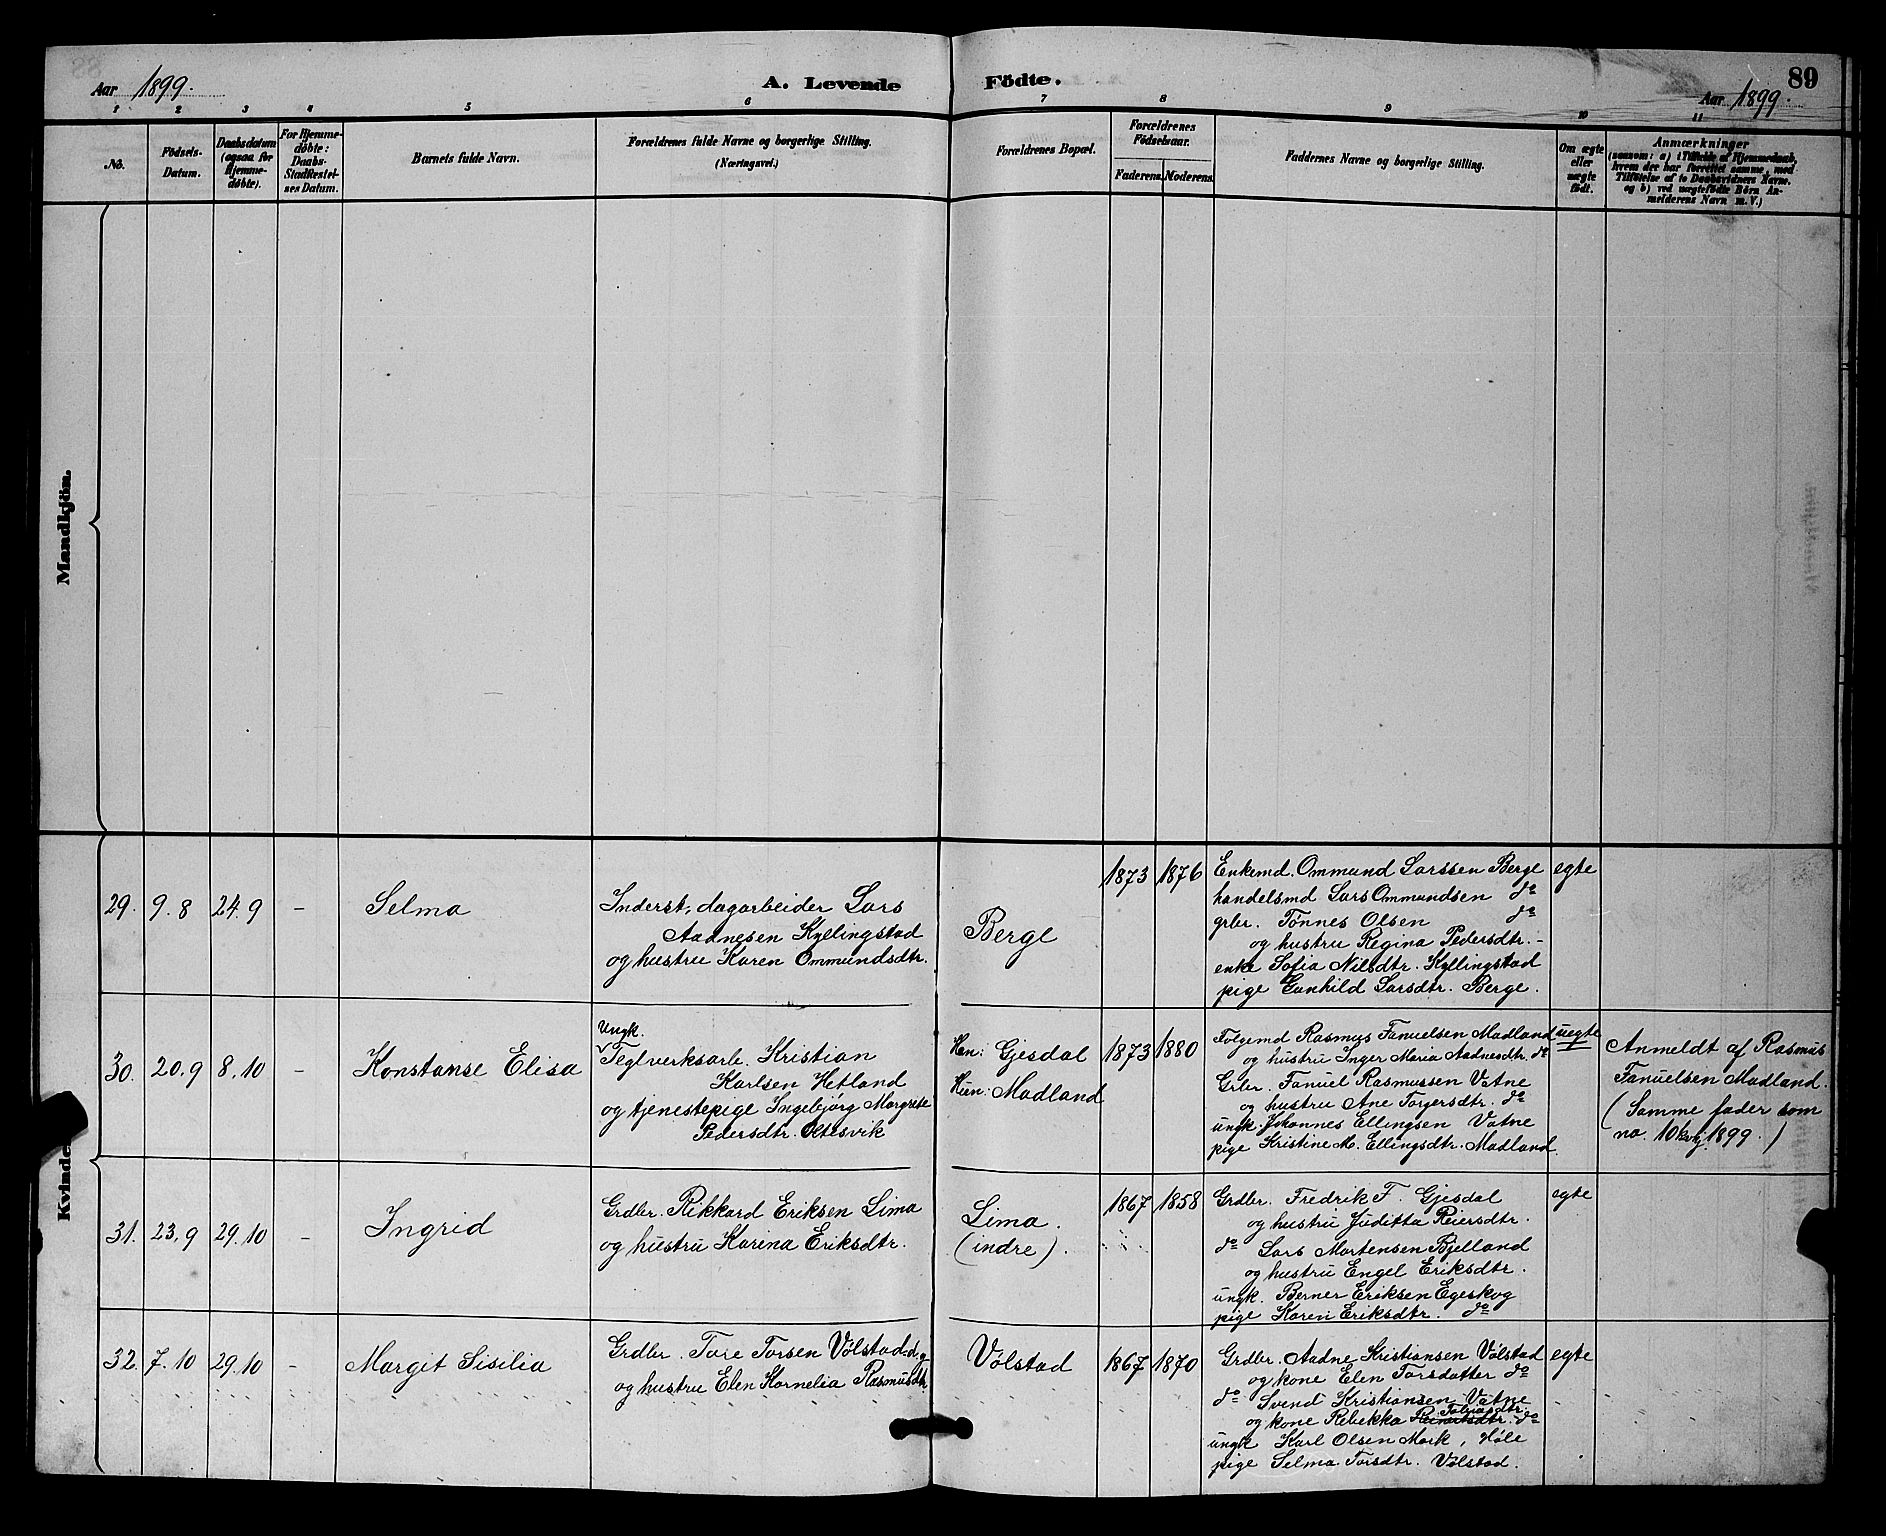 89
Aar 1899.
A. Levende Födte.
Aar 1899.
1 2 3 4 5 6 7 8 9 10 11
No.
Födsels-Datum.
Daabsdatum (ogsaa for Hjemme-döbte).
For Hjemme-döbte: Daabs-Stadfæstel-ses Datum.
Barnets fulde Navn.
Forældrenes fulde Navne og borgerlige Stilling.
(Næringsvei.)
Forældrenes Bopæl.
Forældrenes Födselsaar.
Faderens. Moderens.
Faddernes Navne og borgerlige Stilling.
Om ægte eller uægte födt.
Anmærkninger
(saasom: a) i Tilfælde af Hjemmedaab,
hvem der har forrettet samme, med
Tilföielse af to Daabsvidners Navne,
og b) ved uægtefödte Börn An-
melderens Navn m. V.)
Mandkjön.
Kvinde
29. 9.8 24.9 – Selma
Inderst, dagarbeider Lars
Aadnesen Kyllingstad
og hustru Karen Ommundsdtr.
Berge
1873 1876
Enkemd. Ommund Larssen Berge
handelsmd Lars Ommundsen do
grbr. Tönnes Olsen do
og hustru Regina Pedersdtr. –
enke Sofia Nilsdtr. Kyllingstad
pige Gunhild Larsdtr. Berge.
egte
30. 20.9 8.10 – Konstanse Elisa
Ungk.
Teglverksarb. Kristian
Karlsen Hetland
og tjenestepige Ingebjörg Margrete
Pedersdtr. Oltesvik
Han: Gjesdal
Hun: Madland
1873 1880
Folgemd Rasmus Fanuelsen Madland
og hustru Inger Maria Aadnesdtr. do
Grbr. Fanuel Rasmussen Vatne
og hustru Ane Torgersdtr. do
ungk. Johannes Ellingsen Vatne
pige Kristine M. Ellingsdtr. Madland.
uegte
Anmeldt af Rasmus
Fanuelsen Madland.
(Samme fader som
no. 10 kvkj. 1899.)
31. 23.9 29.10 – Ingrid
Grdbr. Rikkard Eriksen Lima
og hustru Karina Eriksdtr.
Lima.
(indre).
1867 1858
Grdbr. Fredrik F. Gjesdal
og hustru Juditta Reiersdtr.
do Lars Mortensen Bjelland
og hustru Engel Eriksdtr.
ungk. Berner Eriksen Egeskog
pige Karen Eriksdtr. do
egte
32. 7.10 29.10 – Margit Sisilia
Grdbr. Tore Torsen Völstad
og hustru Elen Kornelia Rasmusdtr
Völstad
1867 1870
Grdbr. Aadne Kristiansen Völstad
og kone Elen Torsdatter do
do Svend Kristiansen Vatne
og kone Rebekka Tobiasdtr. do
ungk Karl Olsen Mork, Höle
pige Selma Torsdtr. Völstad.
egte